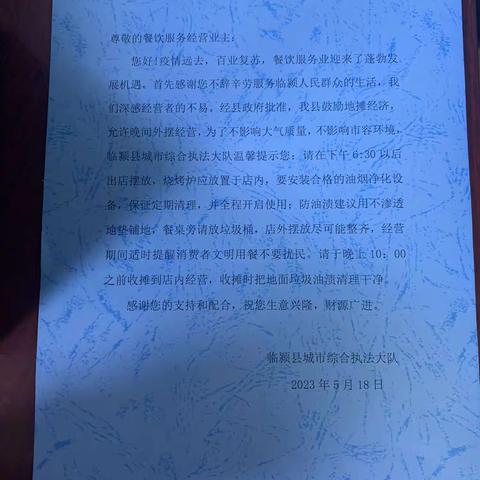 尊敬的餐饮服务经营业主:
您好!疫情远去，百业复苏，餐饮服务业迎来了蓬勃发
展机遇。首先感谢您不辞辛劳服务临颍人民群众的生活，我
们深感经营者的不易。经县政府批准，我县鼓励地摊经济，
允许晚间外摆经营，为了不影响大气质量，不影响市容环境，
临颍县城市综合执法大队温馨提示您：请在下午 6:30 以后
出店摆放，烧烤炉应放置于店内，要安装合格的油烟净化设
备，保证定期清理，并全程开启使用；防油渍建议用不渗透
地垫铺地，餐桌旁请放垃圾桶，店外摆放尽可能整齐，经营
期间适时提醒消费者文明用餐不要扰民。请于晚上 10：00
之前收摊到店内经营，收摊时把地面垃圾油渍清理干净。
感谢您的支持和配合，祝您生意兴隆，财源广进。
临颍县城市综合执法大队
2023 年 5 月 18 日